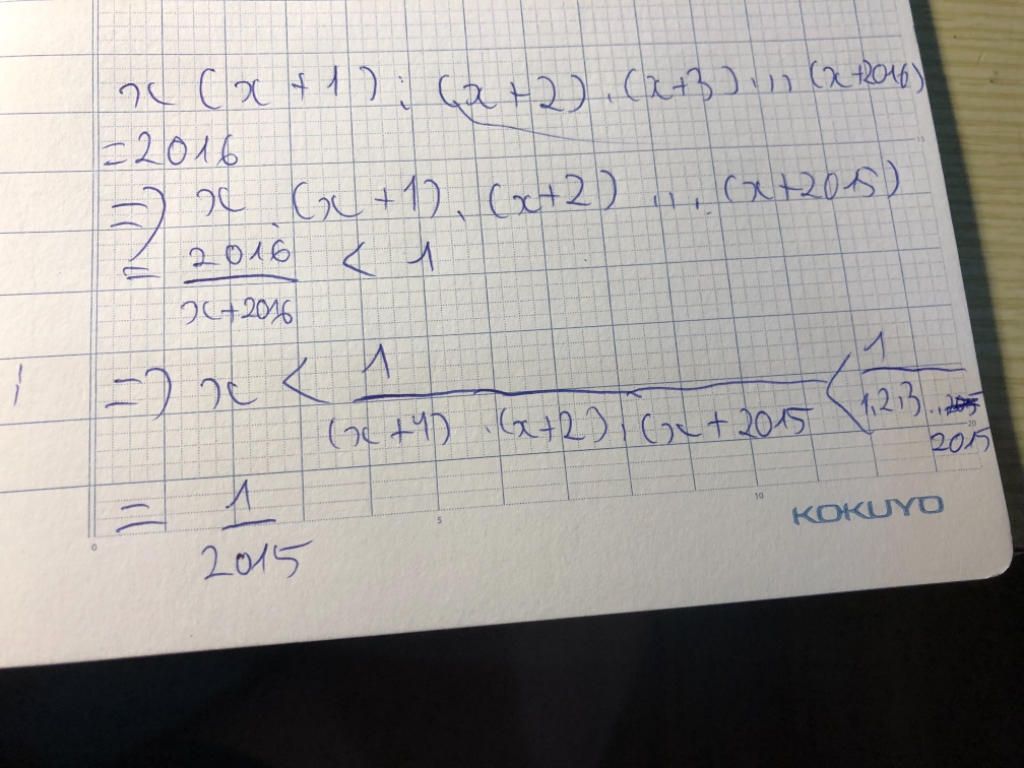 x (x + 1) : (x + 2) . (x + 3) ... (x+2016)
= 2016
=> x . (x + 1) . (x + 2) ... (x + 2015)
= 2016 / x + 2016 < 1
=> x < 1 / (x + 1) . (x + 2) . (x + 2015 < 1 / 1.2.3 ... 2015
= 1 / 2015
0 5 10 15 20
KOKUYO